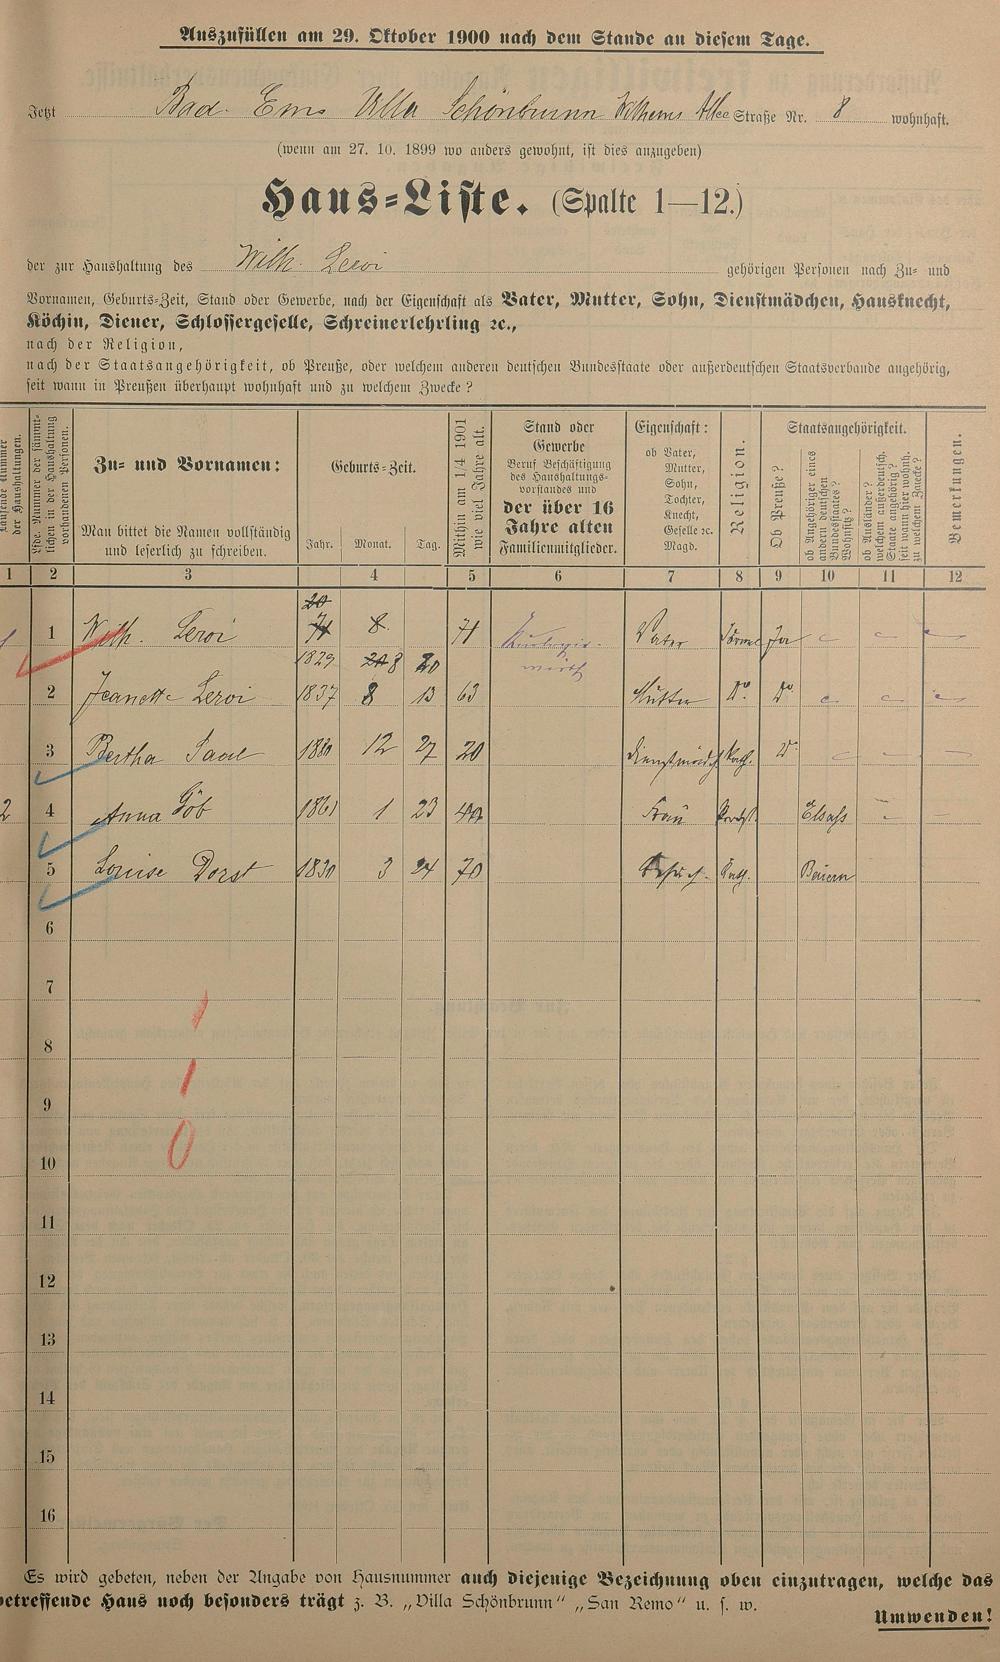 Auszufüllen am 29. Oktober 1900 nach dem Stande an diesem Tage.
Jetzt Bad. Ems Villa Schönbrunn Wilhelms Allee Straße Nr. 8 wohnhaft.
(wenn am 27. 10. 1899 wo anders gewohnt, ist dies anzugeben)
Haus=Liste. (Spalte 1—12.)
der zur Haushaltung des Wilh. Leroi gehörigen Personen nach Zu= und
Vornamen, Geburts=Zeit, Stand oder Gewerbe, nach der Eigenschaft als Vater, Mutter, Sohn, Dienstmädchen, Hausknecht,
Köchin, Diener, Schlossergeselle, Schreinerlehrling ꝛc.,
nach der Religion,
nach der Staatsangehörigkeit, ob Preuße, oder welchem anderen deutschen Bundesstaate oder außerdeutschen Staatsverbande angehörig,
seit wann in Preußen überhaupt wohnhaft und zu welchem Zwecke?
Laufende Nummer der Haushaltungen.
Lfde. Nummer der sämmtlichen in der Haushaltung vorhandenen Personen.
Zu= und Vornamen:
Man bittet die Namen vollständig
und leserlich zu schreiben.
Geburts=Zeit.
Jahr. Monat. Tag.
Mithin am 1/4 1901 wie viel Jahre alt.
Stand oder
Gewerbe
Beruf Beschäftigung
des Haushaltungs=
vorstandes und
der über 16
Jahre alten
Familienmitglieder.
Eigenschaft:
ob Vater,
Mutter,
Sohn,
Tochter,
Knecht,
Geselle ꝛc.
Magd.
Religion.
Staatsangehörigkeit.
Ob Preuße?
ob Angehöriger eines andern deutschen Bundesstaates? Wohnsitz?
ob Ausländer? welchem außerdeutsch. Staate angehörig? seit wann hier wohnh. zu welchem Zwecke?
Bemerkungen.
1 2 3 4 5 6 7 8 9 10 11 12
1 Wilh. Leroi 1829 8 20 71 Vater Ja
2 Jeanette Leroi 1837 8 13 63 Mutter Do. Do.
3 Bertha 1880 12 27 20 Dienstmädch Kath. Do.
2 4 Anna Göb 1861 1 23 40 Frau Elsass
5 Louise Dorst 1830 3 24 70 Besuch. Kath. Baiern
6
7
8
9
10
11
12
13
14
15
16
1
0
Es wird gebeten, neben der Angabe von Hausnummer auch diejenige Bezeichnung oben einzutragen, welche das
betreffende Haus noch besonders trägt z. B. „Villa Schönbrunn“ „San Remo“ u. s. w.
Umwenden!